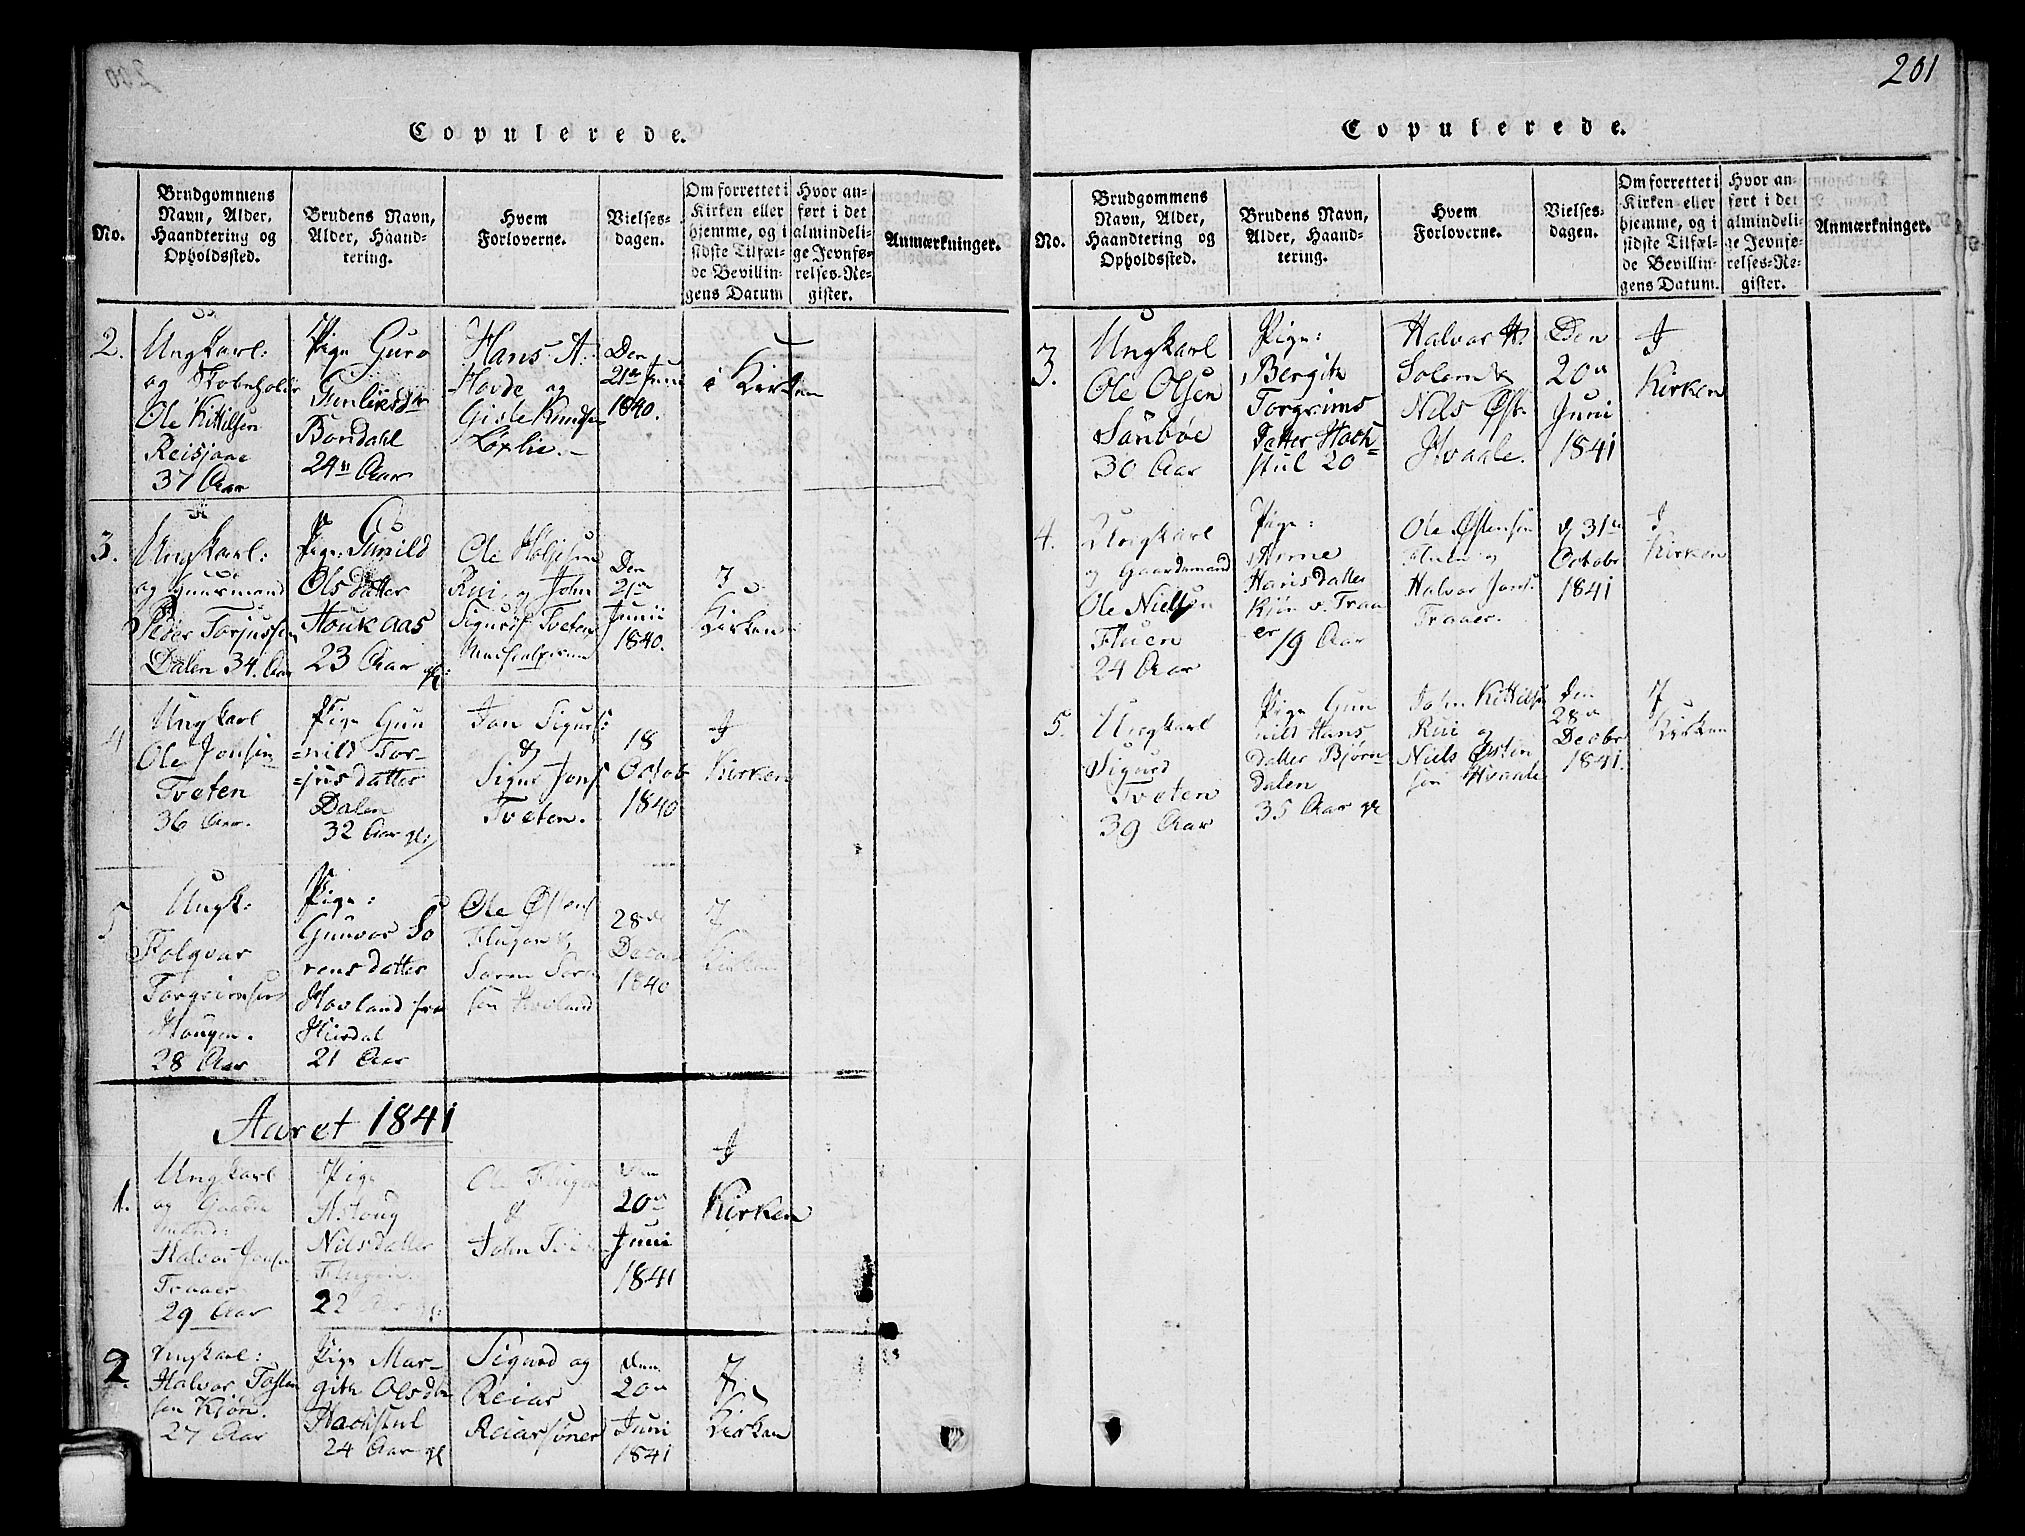 200
Copulerede.
No.
Brudgommens
Navn, Alder,
Haandtering og
Opholdssted.
Brudens Navn,
Alder, Haand-
tering.
Hvem
Forloverne.
Vielses-
dagen.
Om forrettet i
Kirken eller
hjemme, og i
sidste Tilfæl-
de Bevillin-
gens Datum
Hvor an-
ført i det
almindeli-
ge Jevnfø-
relses-Re-
gister.
Anmærkninger.
2.
Ungkarl:
og
Ole Kittilsen
Reisjaae
37 Aar
Pige Guro
Gunleiksdr
Bondahl
24 Aar
Hans A.
Hovde og
Gisle Knudsen
Løxlie.
Den
21de Juni
1840.
i Kirken
3.
Ungkarl:
og Huusmand
Peder Torjussen
Dalen 34. Aar
Pige: Gunild
Olsdatter
Houkaas
23 Aar gl:
Ole
Rui og John
Sigurds Tveten
Den
21de
Junii
1840.
I
Kirken
4
Ungkarl
Ole Jonsen
Tveten
36 Aar.
Pige Gun
=nild Tor-
=jusdatter
Dalen
32 Aar gl:
Jon Sigurds:
&
Sigur Jons
Tveten.
18
Octob
1840
I
Kirken
5
Ungk:
Folqvar
Torgrimsen
Haugen.
28 Aar
Pige:
Gunvor So
rensdatter
Hovland fra
Hierdal
21 Aar
Ole Østens
Flugon &
Søren Søren
sen Hovland
28de
Decbr
1840
I
Kirken
Aaret 1841
1.
Ungkarl
og Gaardm
mand:
Halvor Jonsen
Traaer
29 Aar
Pige
Asloug
Nilsdatter
Flugon.
22 Aar gl:
Ole Flugon
&
John
Den
20de
Juni
1841
I
Kirken
2.
Ungkarl:
Halvor Tosten
sen Kiøn.
27 Aar
Pige Mar-
gith Olsdtr
Hachstul
24 Aar gl
Sigurd og
Reiar
Reiarsøner
Den
20de
Juni
1841
I
Kirken
201
Copulerede.
No.
Brudgommens
Navn, Alder,
Haandtering og
Opholdssted.
Brudens Navn,
Alder, Haand-
tering.
Hvem
Forloverne.
Vielses-
dagen.
Om forrettet i
Kirken eller
hjemme, og i
sidste Tilfæl-
de Bevillin-
gens Datum.
Hvor an-
ført i det
almindeli-
ge Jevnfø-
relses-Re-
gister.
Anmærkninger.
3.
Ungkarl
Ole Olsen
Sanbøe
30 Aar
Pige:
Bergith
Torgrims
Datter Hach=
stul 20
Halvor
Solem &
Nils Øst:
Hvaale.
Den
20de
Juni
1841
I
Kirken
4.
Ungkarl
og Gaardemand
Ole Nielsen
Fluen
24 Aar
Pige:
Anne
Hansdatter
Kiøn v. Traa
er 19 Aar
Ole Østensen
Fluen og
Halvor Jons:
Traaer.
d 31te
Octobr
1841
I
Kirken
5.
Ungkarl
Sigurd
Tveten
39 Aar
Pige Gun
nild Hans
datter Bjørn
dalen
35 Aar gl
John Kittilsen
Rui og
Niels Østen
sen Hvaale
Den
28de
Decbr
1841.
I
Kirken